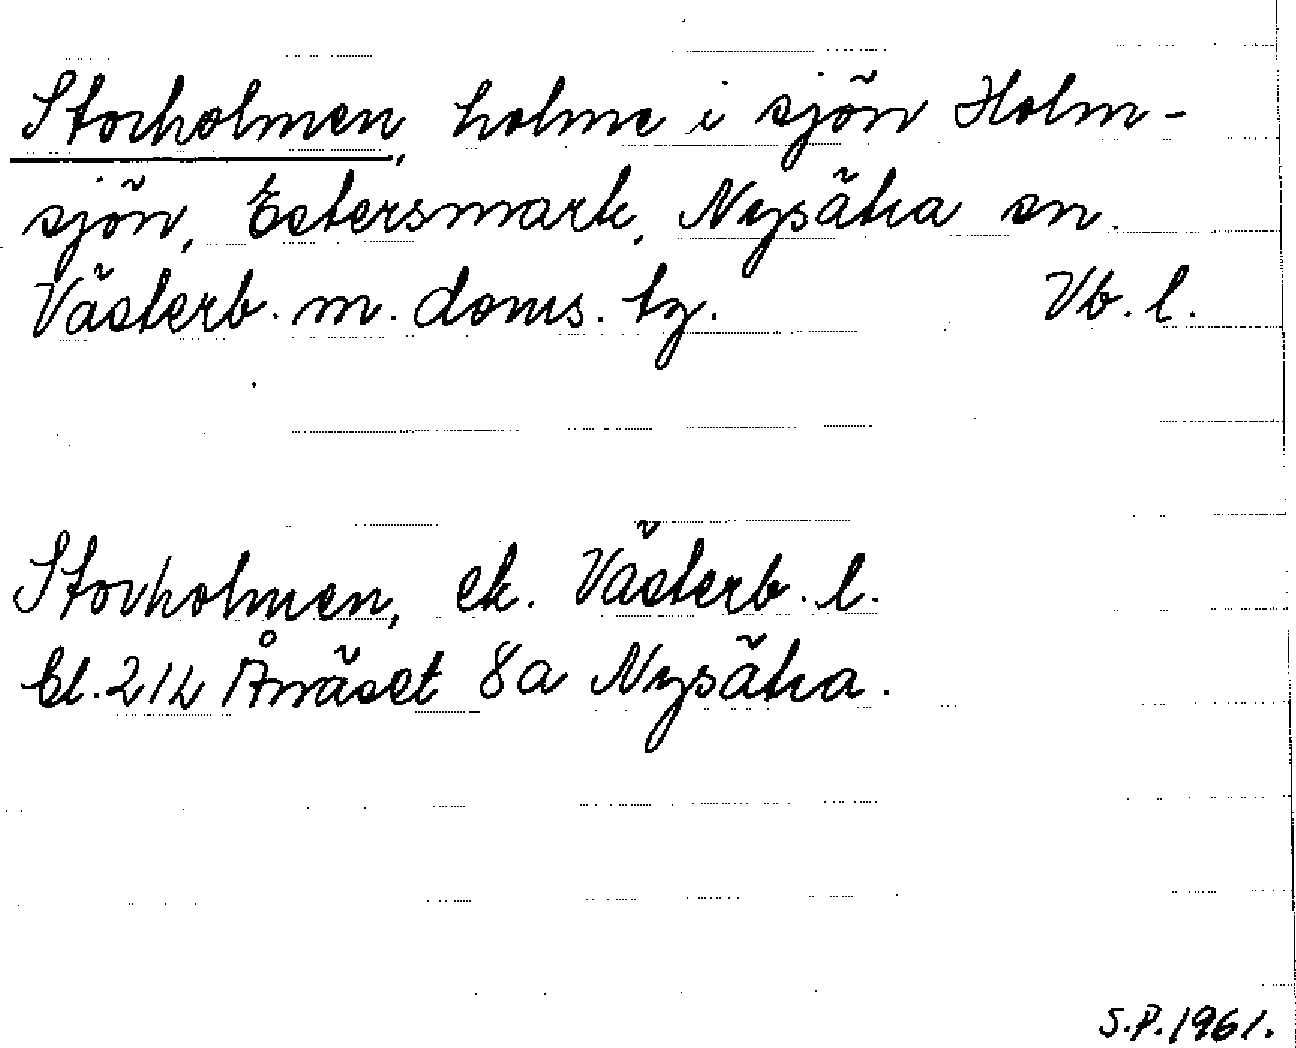 Storholmen, holme i sjön Holm-
sjön, Estersmark, Nysätra sn.
Västerb. m. doms. tg. Vb. l.
Storholmen, ek. Västerb. l.
Bl. 21L Ånäset 8a Nysätra.
S.P. 1961.